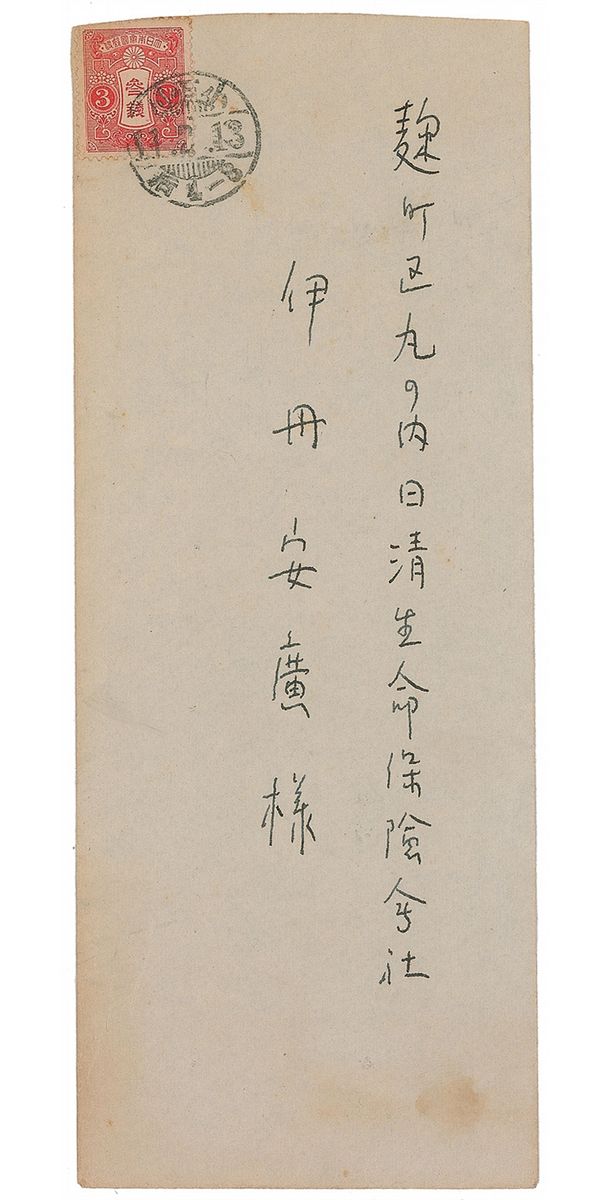 麹町区丸の内日清生命保険会社
伊丹安廣様
大日本帝國郵便
参銭
3
11.2.13